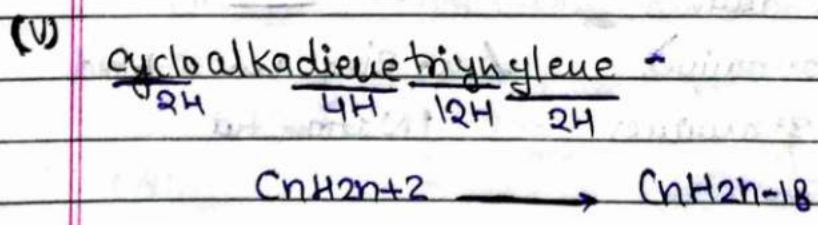 (V) cycloalkadienetriynylene -
2H 4H 12H 2H
CnH2n+2 → CnH2n-18